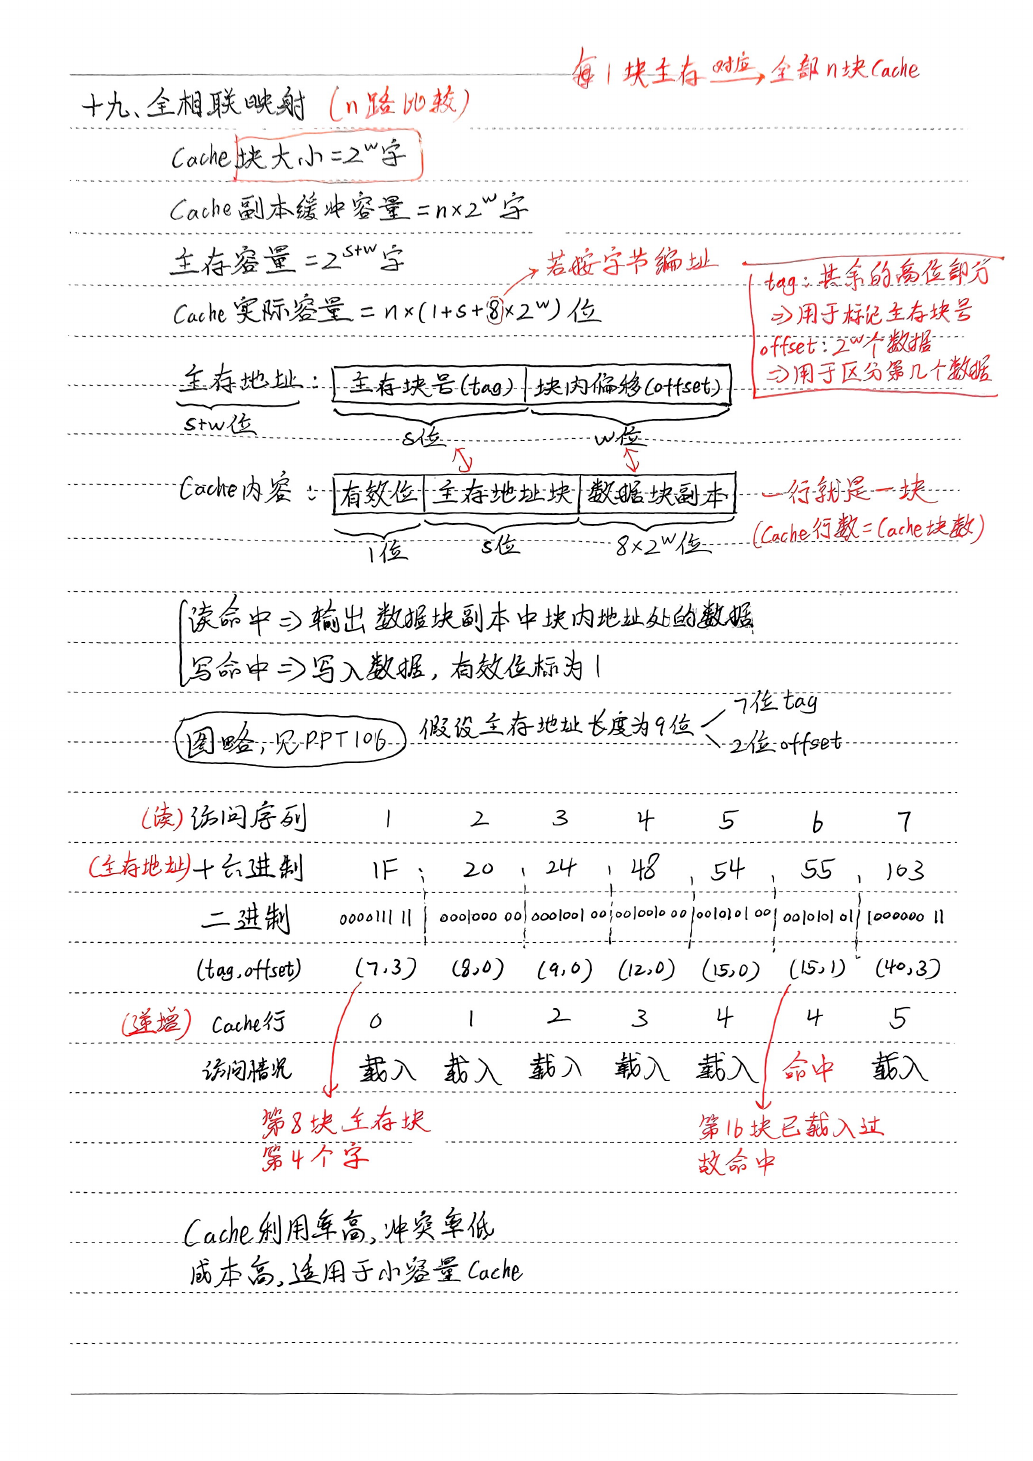 每1块主存 对应→ 全部n块Cache
十九、全相联映射 (n路比较)
Cache块大小=2^w字
Cache副本缓冲容量=n×2^w字
主存容量=2^{s+w}字
→若按字节编址
Cache实际容量=n×(1+s+8×2^w)位
tag:其余的高位部分
⇒用于标记主存块号
offset:2^w个数据
⇒用于区分第几个数据
主存地址: 主存块号(tag) 块内偏移(offset)
s+w位 s位 w位
Cache内容: 有效位 主存地址块 数据块副本
1位 s位 8×2^w位
一行就是一块
(Cache行数=Cache块数)
读命中⇒输出数据块副本中块内地址处的数据
写命中⇒写入数据,有效位标为1
图略,见PPT106 假设主存地址长度为9位
7位tag
2位offset
(读)访问序列 1 2 3 4 5 6 7
(主存地址)十六进制 1F, 20, 24, 48, 54, 55, 103
二进制 0000111 11 0001000 00 0001001 00 0010010 00 0010101 00 0010101 01 1000000 11
(tag,offset) (7,3) (8,0) (9,0) (12,0) (15,0) (15,1) (40,3)
(递增) Cache行 0 1 2 3 4 4 5
访问情况 载入 载入 载入 载入 载入 命中 载入
第8块主存块
第4个字
第16块已载入过
故命中
Cache利用率高,冲突率低
成本高,适用于小容量Cache